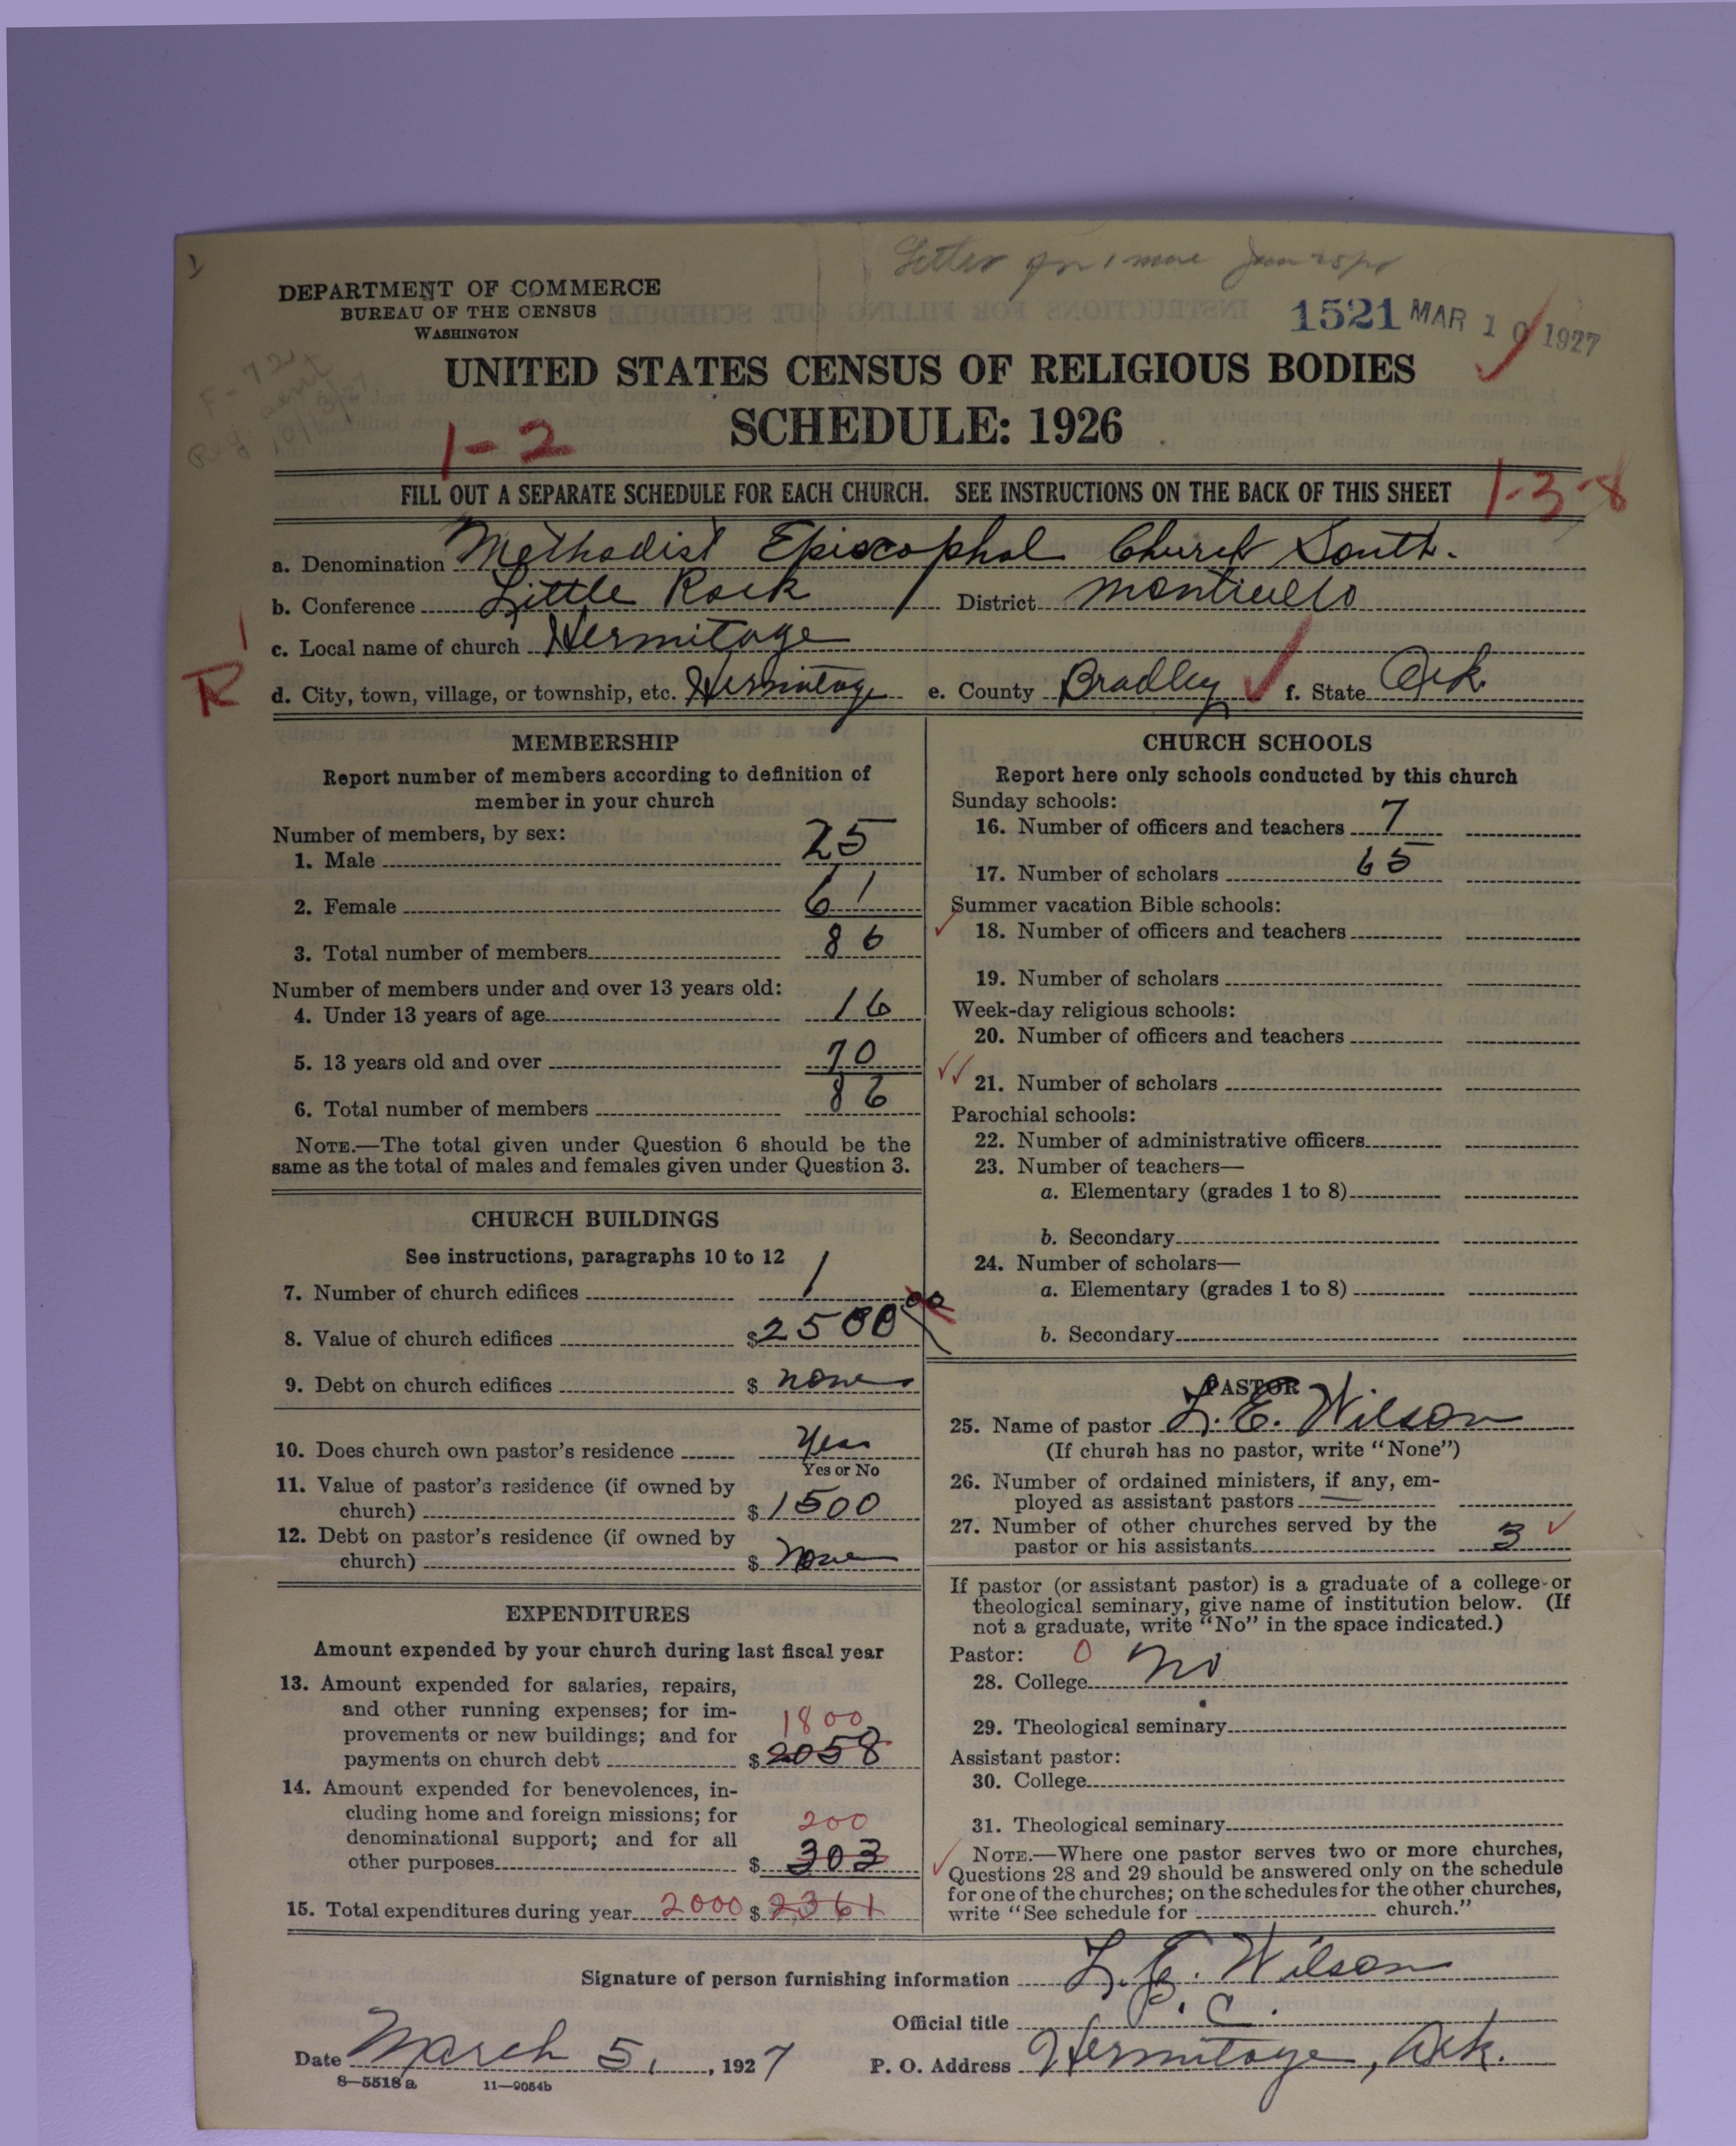 DEPARTMENT OF COMMERCE
BUREAU OF THE CENSUS
WASHINGTON
1521 MAR 10 1927
UNITED STATES CENSUS OF RELIGIOUS BODIES
SCHEDULE: 1926
1-2
FILL OUT A SEPARATE SCHEDULE FOR EACH CHURCH. SEE INSTRUCTIONS ON THE BACK OF THIS SHEET
1-3-8
a. Denomination Methodist Episcophal Church South.
b. Conference Little Rock District Monticello
c. Local name of church Hermitage
R
d. City, town, village, or township, etc. Hermitage e. County Bradley f. State Ark.
MEMBERSHIP
Report number of members according to definition of
member in your church
Number of members, by sex:
1. Male 25
2. Female 61
3. Total number of members 86
Number of members under and over 13 years old:
4. Under 13 years of age 16
5. 13 years old and over 70
6. Total number of members 86
NOTE.—The total given under Question 6 should be the
same as the total of males and females given under Question 3.
CHURCH BUILDINGS
See instructions, paragraphs 10 to 12
7. Number of church edifices 1
8. Value of church edifices $2500 00
9. Debt on church edifices $ none
10. Does church own pastor's residence Yes
Yes or No
11. Value of pastor's residence (if owned by
church) $1500
12. Debt on pastor's residence (if owned by
church) $ None
EXPENDITURES
Amount expended by your church during last fiscal year
13. Amount expended for salaries, repairs,
and other running expenses; for im-
provements or new buildings; and for 1800
payments on church debt $2058
14. Amount expended for benevolences, in-
cluding home and foreign missions; for 200
denominational support; and for all
other purposes $ 303
15. Total expenditures during year 2000 $2361
CHURCH SCHOOLS
Report here only schools conducted by this church
Sunday schools:
16. Number of officers and teachers 7
17. Number of scholars 65
Summer vacation Bible schools:
18. Number of officers and teachers
19. Number of scholars
Week-day religious schools:
20. Number of officers and teachers
21. Number of scholars
Parochial schools:
22. Number of administrative officers
23. Number of teachers—
a. Elementary (grades 1 to 8)
b. Secondary
24. Number of scholars—
a. Elementary (grades 1 to 8)
b. Secondary
PASTOR
25. Name of pastor L. E. Wilson
(If church has no pastor, write "None")
26. Number of ordained ministers, if any, em-
ployed as assistant pastors
27. Number of other churches served by the
pastor or his assistants 3
If pastor (or assistant pastor) is a graduate of a college or
theological seminary, give name of institution below. (If
not a graduate, write "No" in the space indicated.)
Pastor: 0
28. College No
29. Theological seminary
Assistant pastor:
30. College
31. Theological seminary
NOTE.—Where one pastor serves two or more churches,
Questions 28 and 29 should be answered only on the schedule
for one of the churches; on the schedules for the other churches,
write "See schedule for church."
Signature of person furnishing information L. E. Wilson
Official title P. C.
Date March 5, 1927 P. O. Address Hermitage, Ark.
8—5518 a 11—9054b